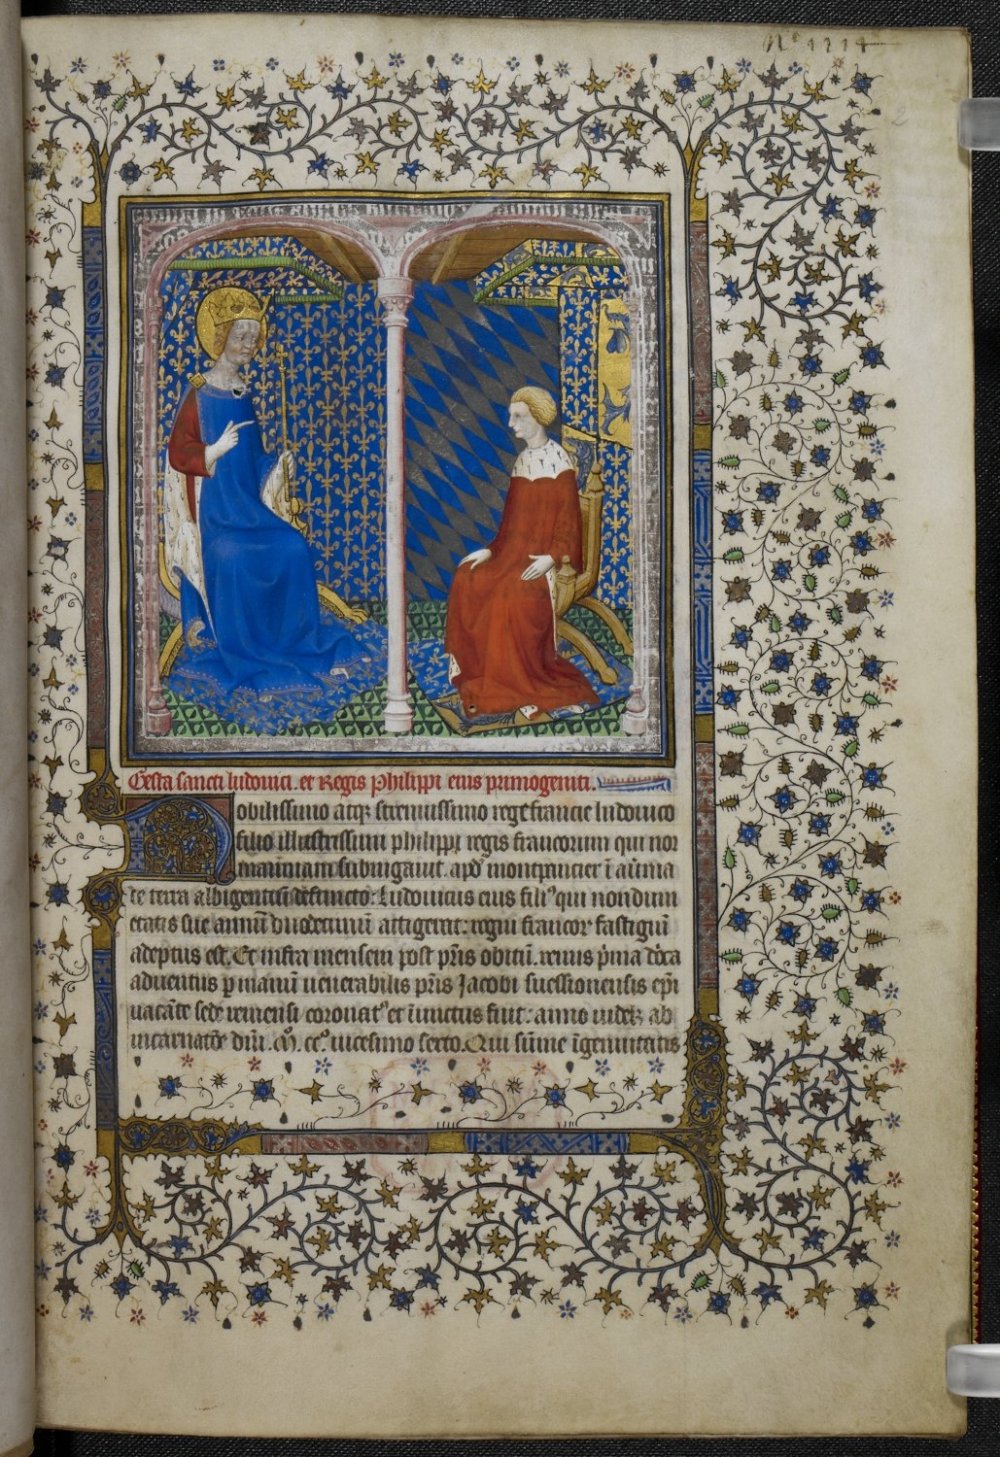 Nº 1214
2
Gesta sancti ludouici. et Regis Philippi eius primogeniti.
Nobilissimo atq; strenuissimo rege francie ludouico
filio illustrissimi philippi regis francorum qui nor
manniam subiugauit. apd' montpancier ī aũnia
de terra albigensi defuncto: Ludouicus eius fili᷒ qui nondum
etatis sue annũ duodecimũ attigerat: regni francor fastigiũ
adeptus est. Et infra mensem post pr̃is obitũ. remis p̃ma dña
aduentus p manũ uenerabilis pr̃is Jacobi suessionensis ep̃i
uacãte sede remensi coronat᷒ et ĩunctus fuit: anno uidelz ab
incarnatõe dñi. Mº. ccº. uicesimo sexto. Qui sũme ĩgenuitatis